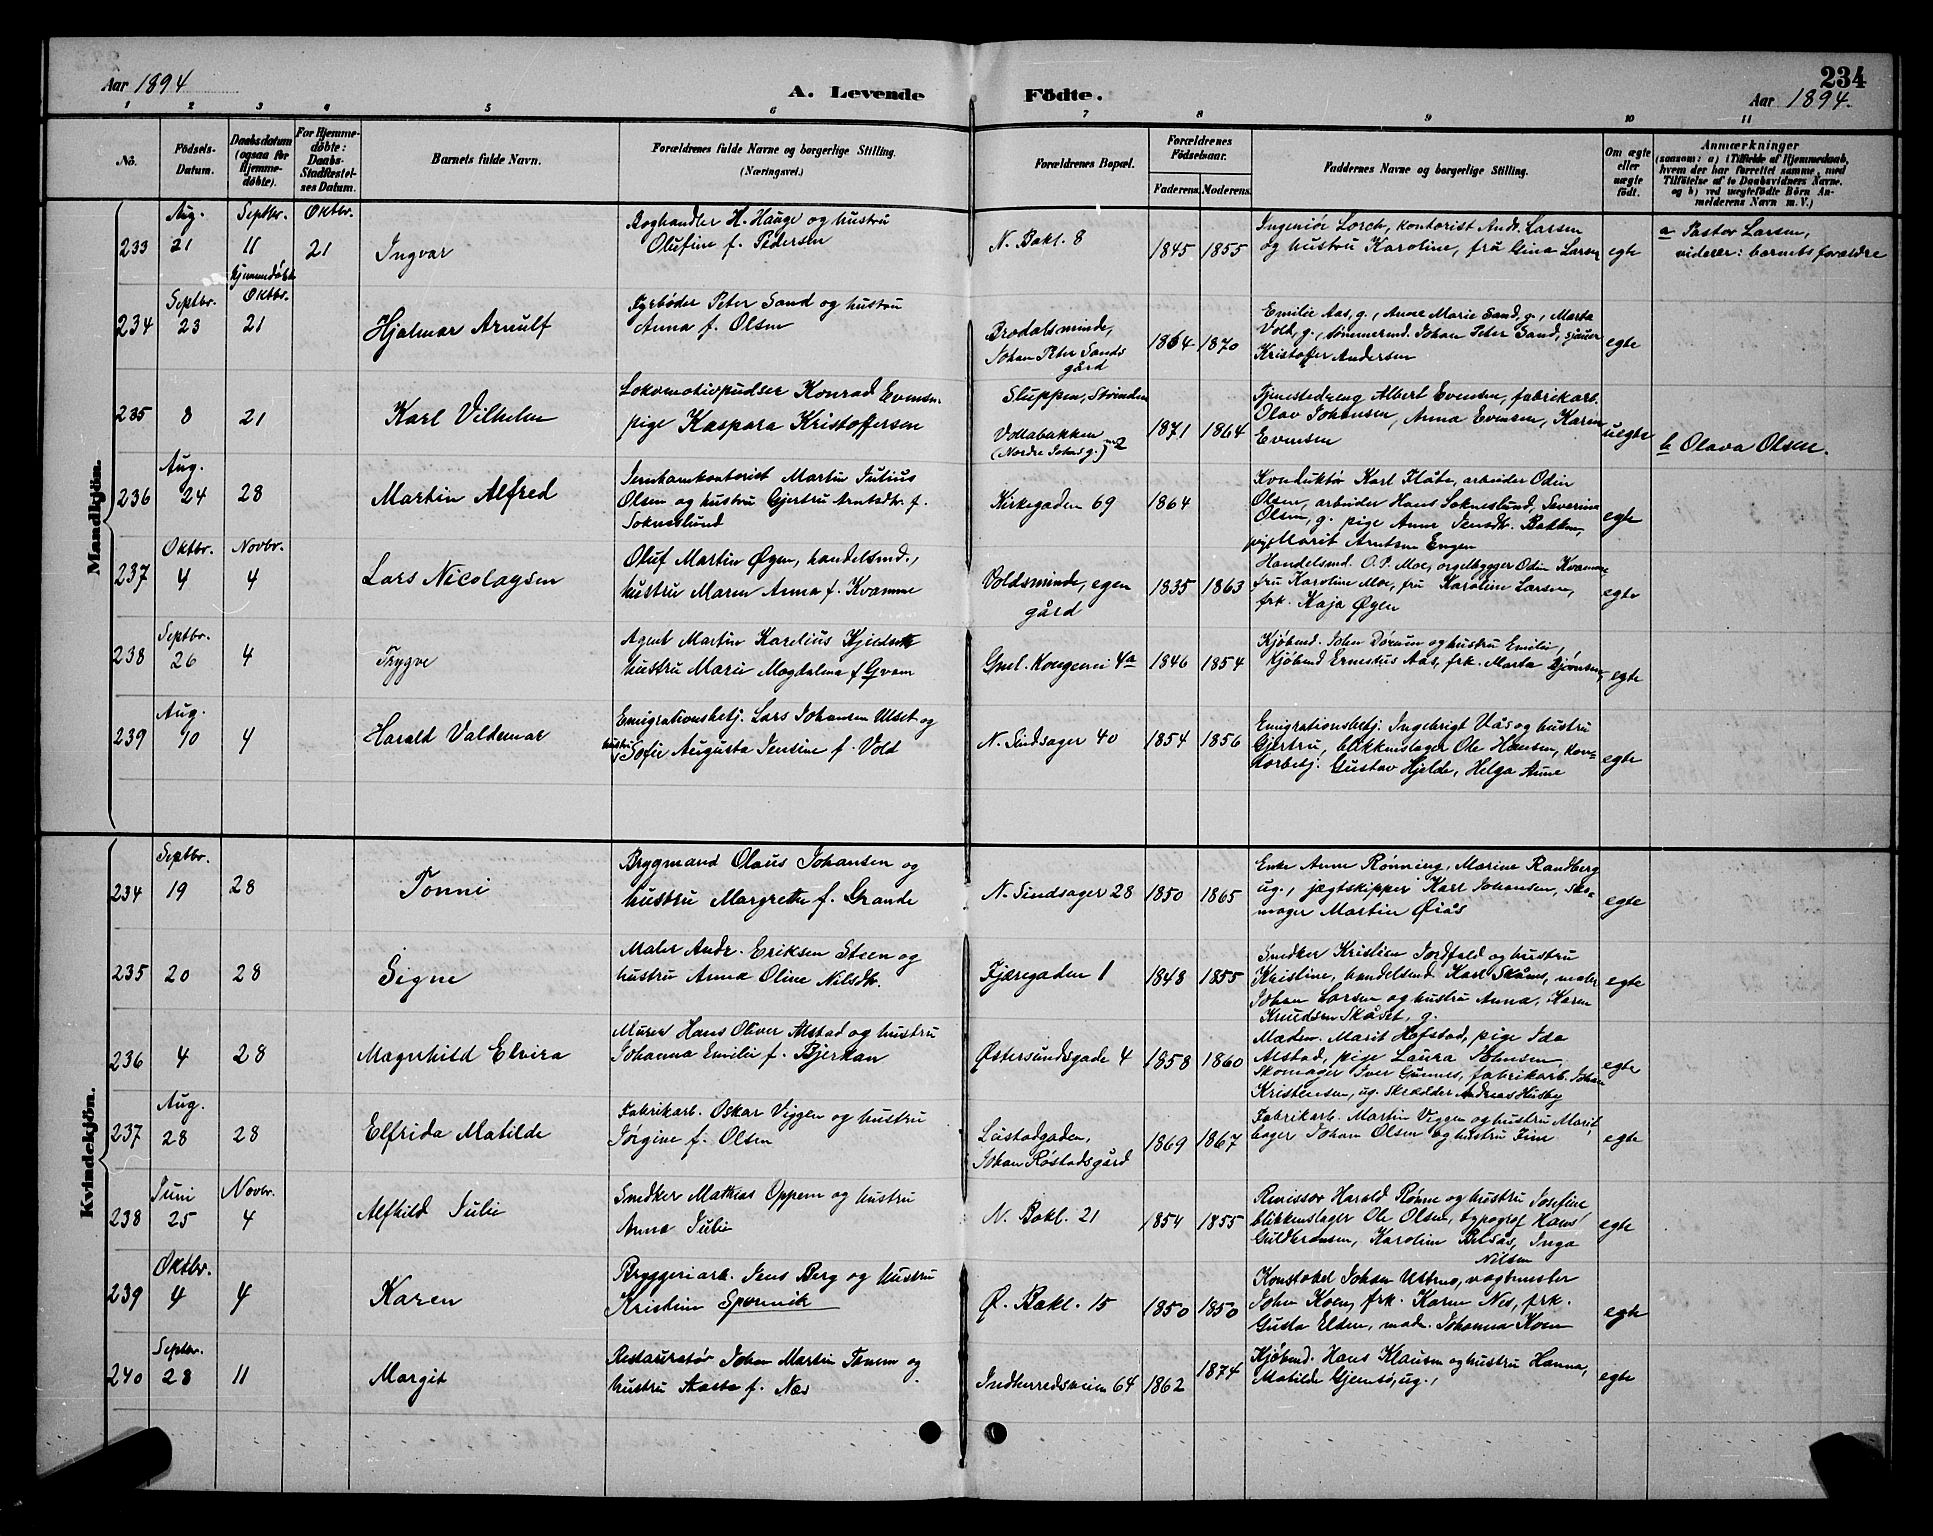 234
Aar 1894
A. Levende
Födte.
Aar 1894.
1 2 3 4 5 6 7 8 9 10 11
No.
Födsels-
Datum.
Daabsdatum
(ogsaa for
Hjemme-
döbte).
For Hjemme-
döbte:
Daabs-
Stadfæstel-
ses Datum.
Barnets fulde Navn.
Forældrenes fulde Navne og borgerlige Stilling.
(Næringsvei.)
Forældrenes Bopæl.
Forældrenes
Födselsaar.
Faderens. Moderens.
Faddernes Navne og borgerlige Stilling.
Om ægte
eller
uægte
födt.
Anmærkninger
(saasom: a) i Tilfælde af Hjemmedaab,
hvem der har forrettet samme, med
Tilföielse af to Daabsvidners Navne,
og b) ved uægtefödte Börn An-
melderens Navn m. V.)
Mandkjön.
233
Aug. 21
Septbr. 11
Hjemmedöbt
Oktbr. 21
Ingvar
Boghandler H. Hauge og hustru
Olufine f. Pedersen
N. Bakl. 8
1845 1855
Ingeniør Lorch, kontorist Andr. Larsen
og hustru Karoline, fru Gina Larsen
egte
a Pastor Larsen,
vidner: barnets forældre
234
Septbr. 23
Oktbr. 21
Hjalmar Arnulf
Fyrbøder Peter Sand og hustru
Anna f. Olsen
Brodalsminde,
Johan Peter Sands
gård
1864 1870
Emilie Aas, g., Anne Marie Sand, g., Marta
Volb, g., tømmermd. Johan Peter Sand, sjauer
Kristoffer Andersen
egte
235
8
21
Karl Vilhelm
Lokomotivpudser Konrad Evensen.
pige Kaspara Kristoffersen
Sluppen, Strinden
Vollabakken
(Nordre Johns g.) 2
1871 1864
Tjenestedreng Albert Evensen, fabrikarb.
Olav Johansen, Anna Evensen, Karin
Evensen
uegte
b Olava Olsen.
236
Aug. 24
28
Martin Alfred
Jernbankontorist Martin Julius
Olsen og hustru Gjertru Arntsdtr. f.
Sokneslund
Kirkegaden 69
1864
Konduktør Karl Flåte, arbeider Odin
Olsen, arbeider Hans Sokneslund, Severine
Olsen, g. pige Anne Jensdtr. Bakken,
pige Marit Arntsen Engen
egte
237
Oktbr. 4
Novbr. 4
Lars Nicolaysen
Oluf Martin Øyen, handelsmd.,
hustru Maren Anna f. Kvamme
Voldsminde, egen
gård
1835 1863
Handelsmd. O. P. Moe, orgelbygger Odin Kvamme
fru Karoline Moe, fru Karoline Larsen,
frk. Kaja Øyen
egte
238
Septbr. 26
4
Trygve
Agent Martin Karelius
hustru Marie Magdalena f.
Gml. Kongevei 4a
1846 1854
Kjøbmd. John Dørum og hustru Emilie,
Kjøbmd Ernestus Aas, frk. Marta Bjørnsen,
egte
239
Aug. 10
4
Harald Valdemar
Emigrationsbetj. Lars Johansen Ulset og
hustru Sofie Augusta Jensine f. Volt
N. Sindsager 40
1854 1856
Emigrationsbetj. Ingebrigt Vås og hustru
Gjertru, blikkenslager Ole Hansen, kon-
torbetj. Gustav Hjelde, Helga Aune
egte
Kvindekjön.
234
Septbr. 19
28
Tonni
Brygmand Olaus Johansen og
hustru Margrethe f. Grande
N. Sindsager 28
1850 1865
Enke Anne Rønning, Marine Randberg
ug., jægtskipper Karl Johansen, sko-
mager Martin Øiås
egte
235
20
28
Signe
Maler Andr. Eriksen Steen og
hustru Anna Oline Nilsdtr.
Fjæregaden 1
1848 1855
Snedker Kristian Jordfald og hustru
Kristine, handelsmd. Karl Skåns, maler
Johan Larsen og hustru Anna, Karen
Knudsen Skåset, g.
egte
236
4
28
Magnhild Elvira
Murer Hans Oliver Alstad og hustru
Johanna Emilie f. Bjerkan
Østersundsgade 4
1858 1860
Madm. Marit Hofstad, pige Ida
Alstad, pige Laura
Skomager Iver Gunnes, fabrikarb. Johan
Kristensen, ug. Skrædder Andreas Husby
egte
237
Aug. 28
28
Elfrida Matilde
Fabrikarb. Oskar Viggen og hustru
Jørgine f. Olsen
Ladstadgaden,
Johan Røstadsgård
1869 1867
Fabrikarb. Martin Viggen og hustru Marit,
bager Johan Olsen og hustru Fine
egte
238
Juni 25
Novbr. 4
Alfhild Julie
Snedker Mathias Oppem og hustru
Anna Julie
N. Bakl. 21
1854 1855
Revissor Harald Rønne og hustru Josefine
blikkenslager Ole Olsen, typograf Hans
Guldbransen, Karoline Belsås, Inga
Nilsen
egte
239
Oktbr. 4
4
Karen
Bryggeriarb. Jens Berg og hustru
Kristine Spormik
Ø. Bakl. 15
1850 1850
Konstabel Johan Utterø, vagtmester
John Koen, frk. Karen Nes, frk.
Gusta Elden, madm. Johanna Koen
egte
240
Septbr. 28
11
Margit
Restauratør Johan Martin Tanem og
hustru Aasta f. Næs
Indherredsveien 64
1862 1874
Kjøbmd. Hans Klausen og hustru Hanna,
Matilde Gjemsø, ug.,
egte